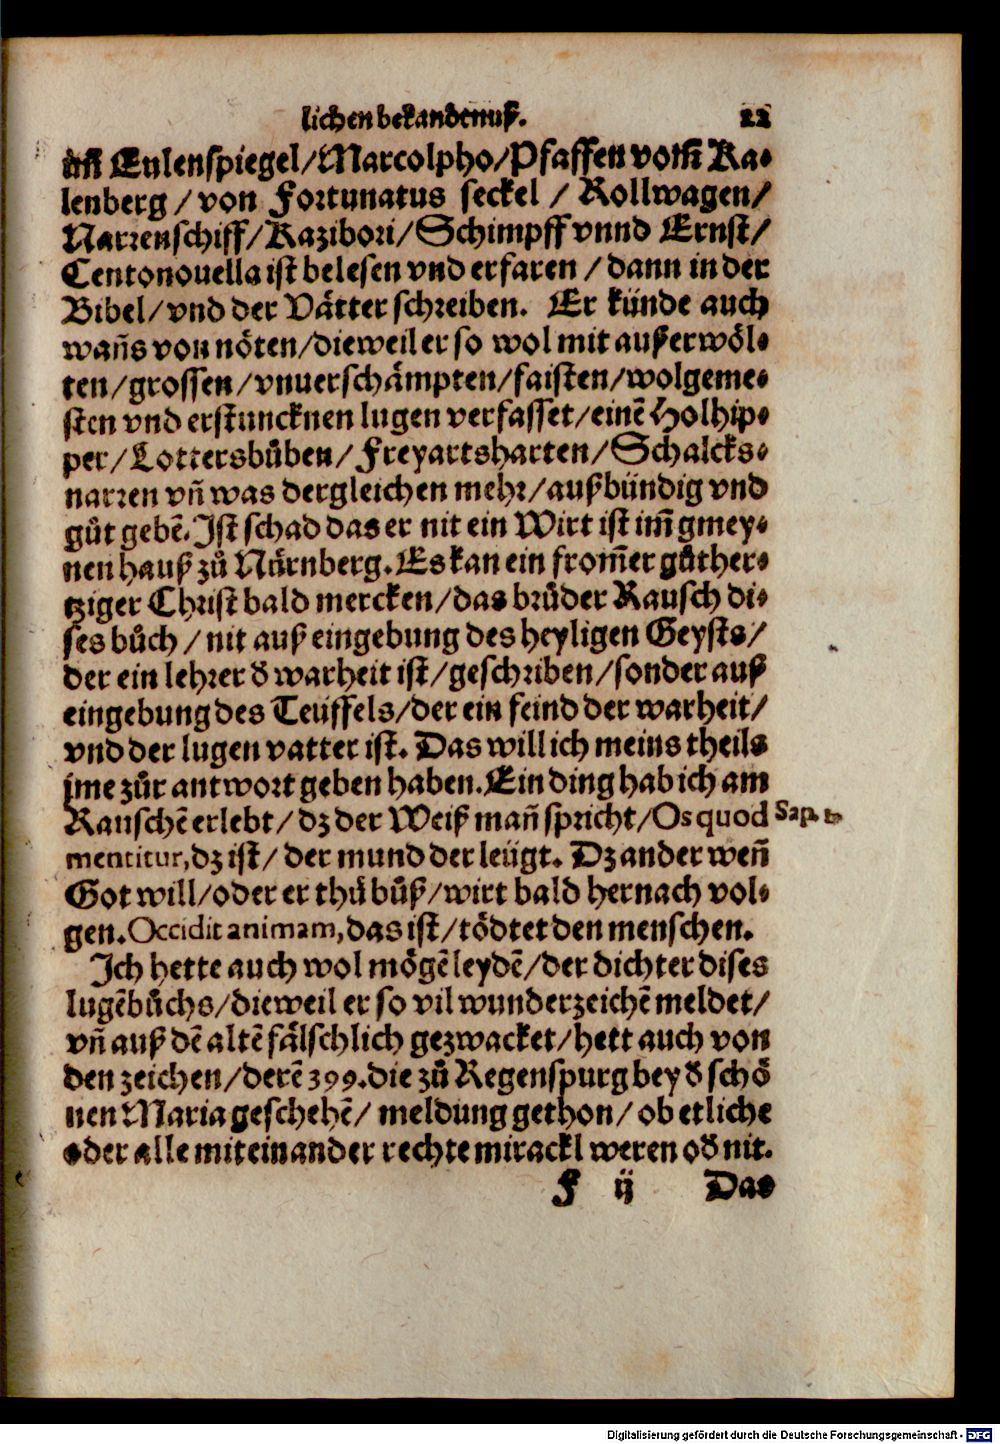 lichen bekandtnuß. 22
im Eulenspiegel/Marcolpho/Pfaffen vom̃ Ka⸗
lenberg/von Fortunatus seckel/Rollwagen/
Narrenschiff/Kazibori/Schimpff vnnd Ernst/
Centonouella ist belesen vnd erfaren/dann in der
Bibel/vnd der Vätter schreiben. Er künde auch
wañs von nöten/dieweil er so wol mit außerwöl⸗
ten/grossen/vnuerschämpten/faisten/wolgeme⸗
sten vnd erstuncknen lugen verfasset/einẽ Holhip⸗
per/Lottersbůben/Freyartsharten/Schalcks⸗
narren vñ was dergleichen mehr/außbündig vnd
gůt gebẽ. Ist schad das er nit ein Wirt ist im̃ gmey⸗
nen hauß zů Nürnberg. Es kan ein from̃er gůther⸗
tziger Christ bald mercken/das brůder Rausch di⸗
ses bůch/nit auß eingebung des heyligen Geysts/
der ein lehrer ď warheit ist/geschriben/sonder auß
eingebung des Teüffels/der ein feind der warheit/
vnd der lugen vatter ist. Das will ich meins theils
jme zůr antwort geben haben. Ein ding hab ich am
Rauschẽ erlebt/dz der Weiß mañ spricht/Os quod Sap. 1.
mentitur, dz ist/der mund der leügt. Dz ander weñ
Got will/oder er thů bůß/wirt bald hernach vol⸗
gen. Occidit animam, das ist/tödtet den menschen.
Ich hette auch wol mögẽ leydẽ/der dichter dises
lugẽbůchs/dieweil er so vil wunderzeichẽ meldet/
vñ auß dẽ altẽ fälschlich gezwacket/hett auch von
den zeichen/derẽ 399. die zů Regenspurg bey ď schö
nen Maria geschehẽ/meldung gethon/ob etliche
oder alle miteinander rechte mirackl weren oď nit.
F ij Das
Digitalisierung gefördert durch die Deutsche Forschungsgemeinschaft - DFG